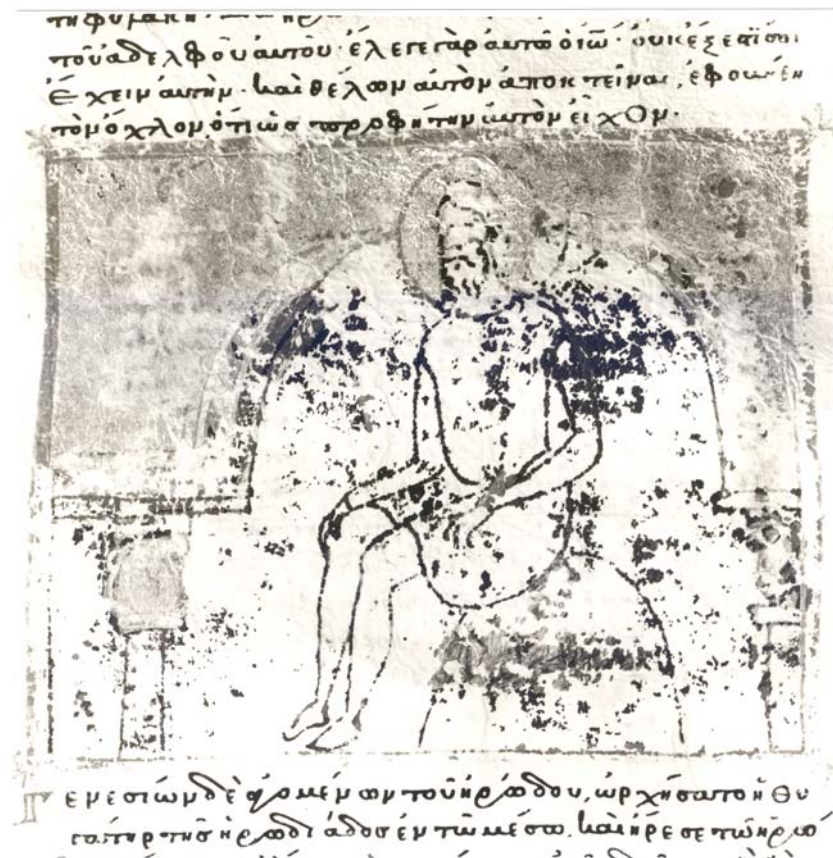 τῆ φυλακῆ
τοῦ ἀδελφοῦ αὐτοῦ· ἔλεγε γὰρ αὐτῶ ὁ ἰω· οὐκ ἔξεστί σοι
ἔχειν αὐτήν· καὶ θέλων αὐτὸν ἀποκτεῖναι, ἐφοβήθη
τὸν ὄχλον, ὅτι ὡς προφήτην αὐτὸν εἶχον·
Γενεσίων δὲ ἀγομένων τοῦ ἡρώδου, ὠρχήσατο ἡ θυ
γάτηρ τῆς ἡρωδιάδος ἐν τῶ μέσω, καὶ ἤρεσε τῶ ἡρώ